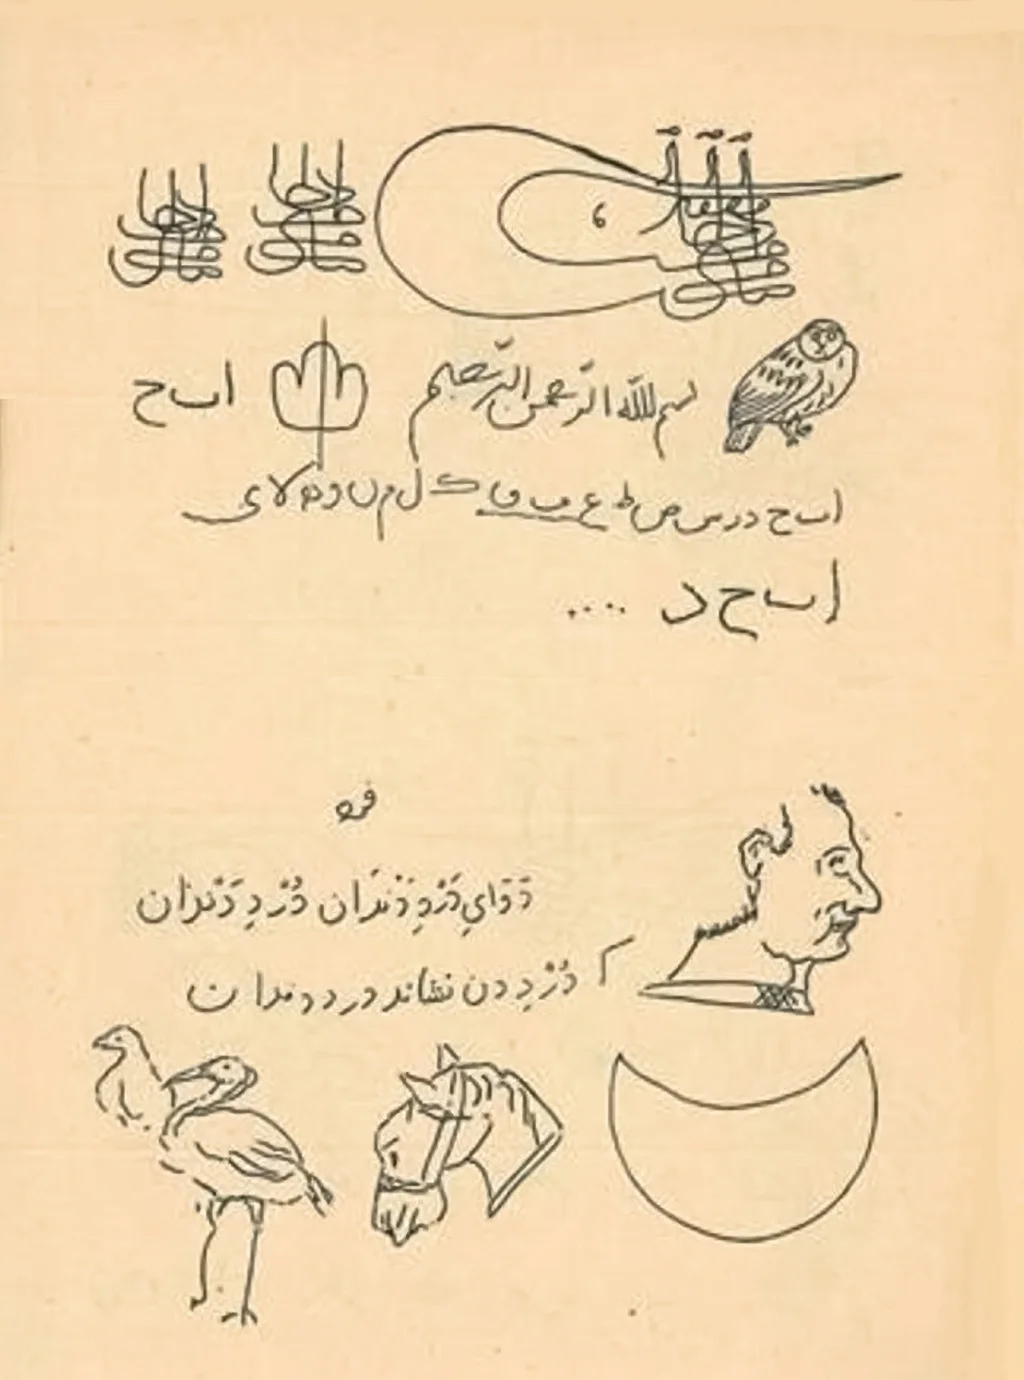 بسم الله الرّحمن الرّحيم
ا ٮ ح
ا ٮ ح د ر س ص ط ع ڡ ٯ ك ل م ں و ه لا ى
ا ٮ ح د ....
دَوَايِ دَرْدِ دَنْدَان دُرْدِ دَنْدَان
دُرْدِ دن نشاند درد دندان